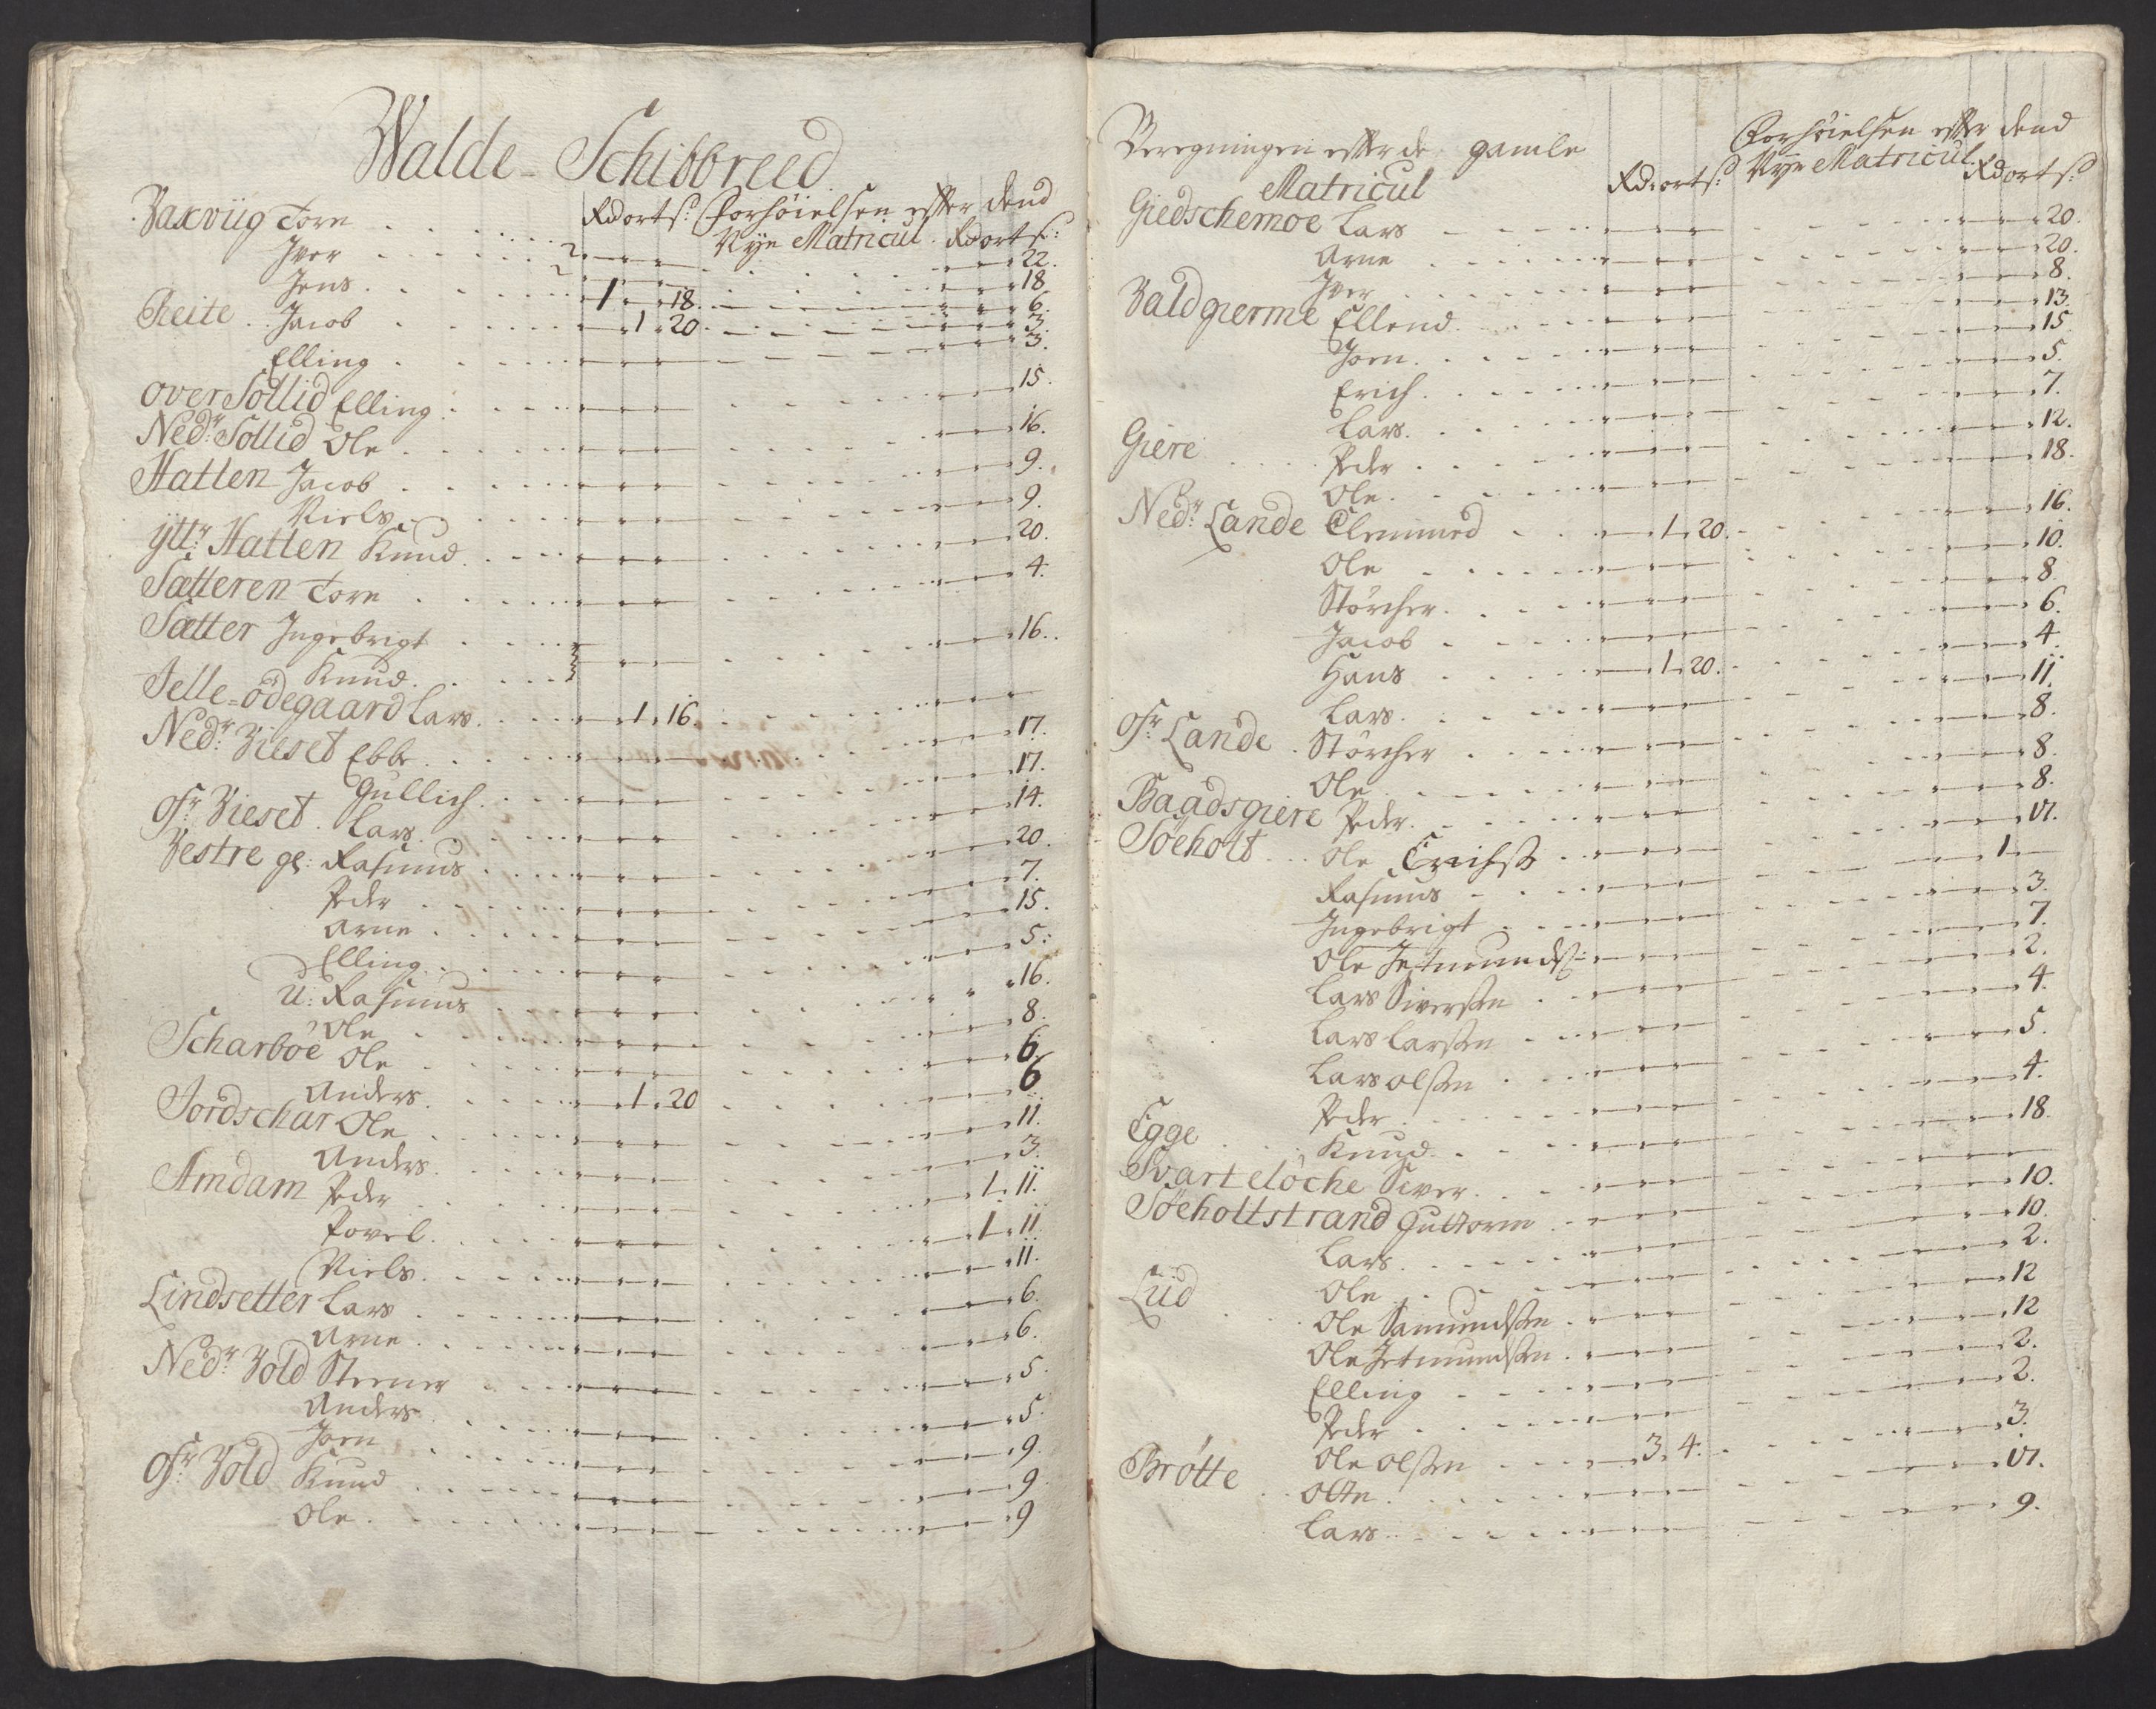 Walde - Schibbreed
Rd ort s: Forhöielsen efter dend
Nÿe Matricul. Rd ort s:
Zaxviig Tore 22.
Jver 18
Jens. 1 18. 6.
Reite Jacob 1 20. 3.
Elling 3.
over Sollid Elling. 15.
Ned:r Sollid Ole 16.
Hatlen Jacob 9.
Niels 9.
ÿtt:r Hatlen Knud 20.
Sætteren Tore 4.
Sætter Jngebrigt 16.
Knud.
Jelle=ödegaard Lars. 1. 16.
Ned:r Zieset Ebbe 17.
Gullich. 17.
Of:r Zieset. Lars 14.
Zestre ge: Rasmus 20.
Peder 7.
Arne 15.
Elling. 5:
U: Rasmus 16.
Ole 8.
Scharböe Ole 6.
Anders. 1. 20 6
Jordschar Ole 11.
Anders. 3.
Amdam Peder 1. 11.
Povel. 1. 11.
Niels. 11.
Lindsetter Lars 6.
Arne 6.
Ned:r Zold Steener 5.
Anders 5.
Joen 9.
Of:r Zold Knud 9.
Ole. 9
Beregningen efter de gamle
Matricul
Rd: ort s:
Forhöielsen efter dend
Nÿe Matricul. Rd ort s:
Giedschemoe Lars 20.
Arne 20.
Jver 8.
Zaldgierme Ellend 13.
Joen. 15
Erich. 5.
Lars. 7.
Giere Peder 12.
Ole. 18.
Ned:r Lande Clemmed 1. 20. 16.
Ole 10.
Störcher. 8.
Jacob 6.
Hans 1. 20. 4.
Lars. 11.
Of:r Lande Störcher 8.
Ole 8.
Baadsgiere Peder. 8.
Söeholt Ole Erichs: 17.
Rasmus 1
Jngebrigt 3.
Ole Jetmunds: 7.
Lars Siversen 2.
Lars Larsen 4.
Lars olsen 5.
Peder 4.
Egge Knud. 18.
Svartelöche Siver.
Söeholtstrand Guttorm 10.
Lars. 10.
Ole 2.
Lüd Ole Samundsen 12
Ole Jetmundsen 12
Elling 2.
Peder 2.
Ole olsen 3. 4. 3.
Brötte Otte. 17.
Lars 9.